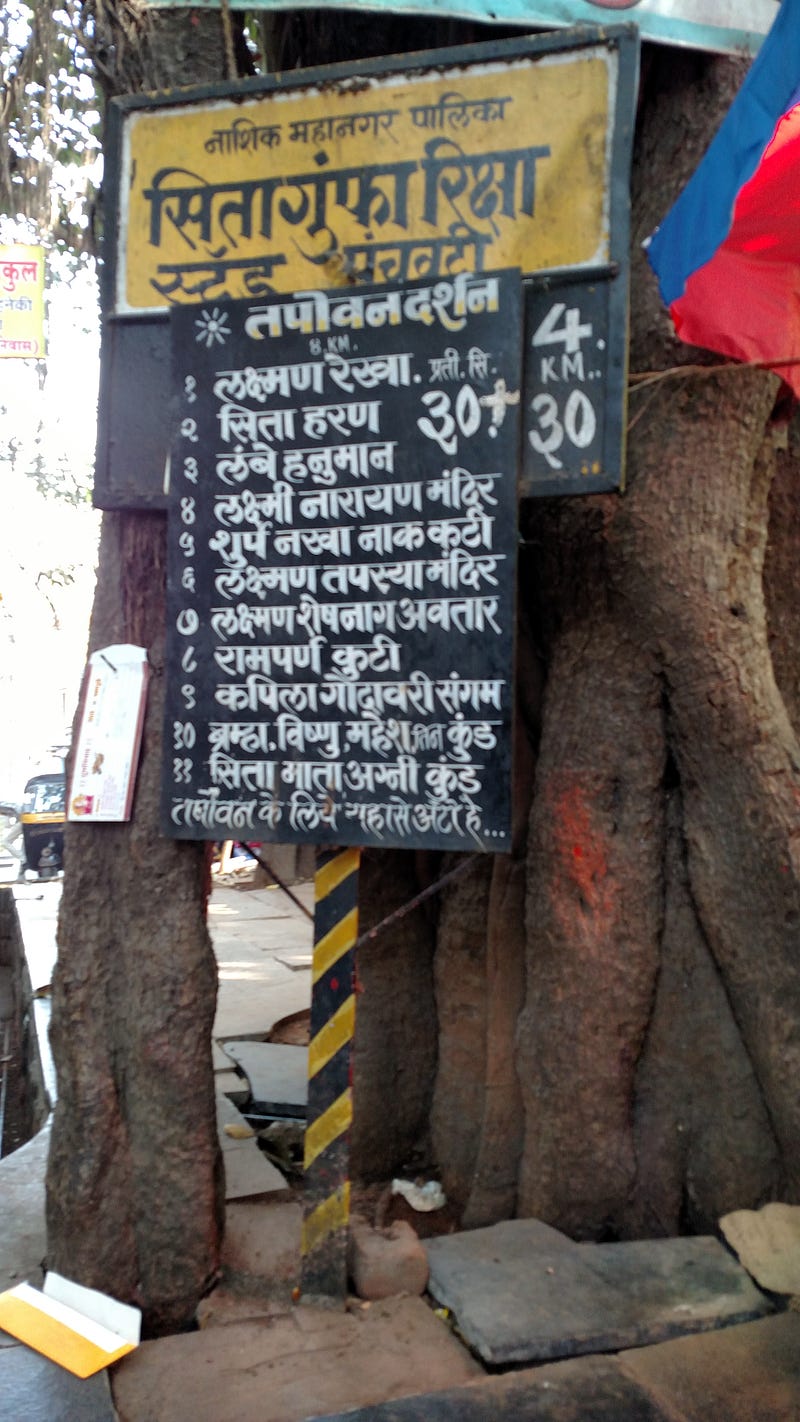 नाशिक महानगर पालिका
सितागुंफा रिक्षा
स्टॅंड पंचवटी
तपोवन दर्शन
४.KM.
१ लक्ष्मण रेखा. प्रती.सि.
२ सिता हरण ३०+
३ लंबे हनुमान
४ लक्ष्मी नारायण मंदिर
५ शुर्प नखा नाक कटी
६ लक्ष्मण तपस्या मंदिर
७ लक्ष्मण शेषनाग अवतार
८ रामपर्ण कुटी
९ कपिला गोदावरी संगम
१० ब्रम्हा.विष्णु.महेश.तिन कुंड
११ सिता माता अग्नी कुंड
तपोवन के लिये यहा से अँटो हे...
4.
KM..
३०
कुल
नेकी